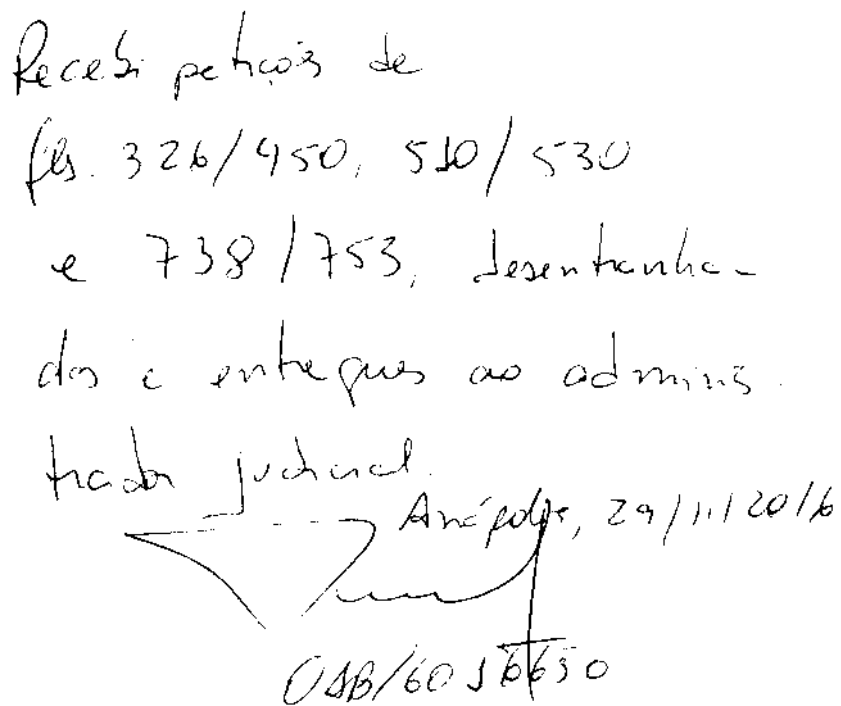 Recebi petições de
fls. 326/450, 510/530
e 738/753, desentranha-
dos e entregues ao adminis
trador judicial.
Anápolis, 29/11/2016
OAB/GO